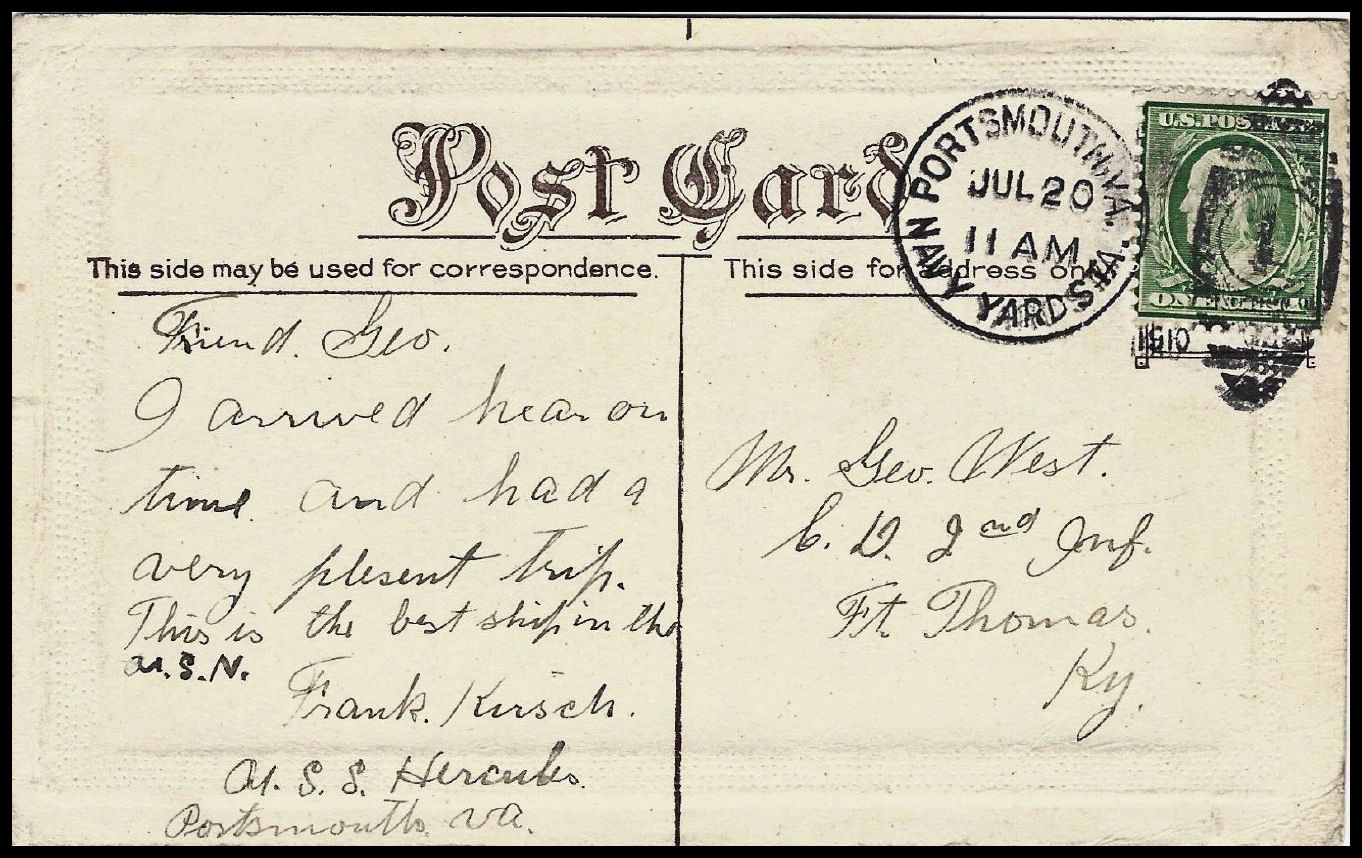 Post Card
This side may be used for correspondence.
This side for address on
PORTSMOUTH, VA.
JUL 20
11 AM
NAVY YARD STA.
U.S. POSTAGE
1
1910
Friend. Geo.
I arrived hear on
time. and had a
very plesent trip.
This is the best ship in the
U.S.N.
Frank. Kirsch.
U.S.S. Hercules.
Portsmouth. va.
Mr. Geo. West.
C. D. 2nd Inf.
Ft. Thomas.
Ky.